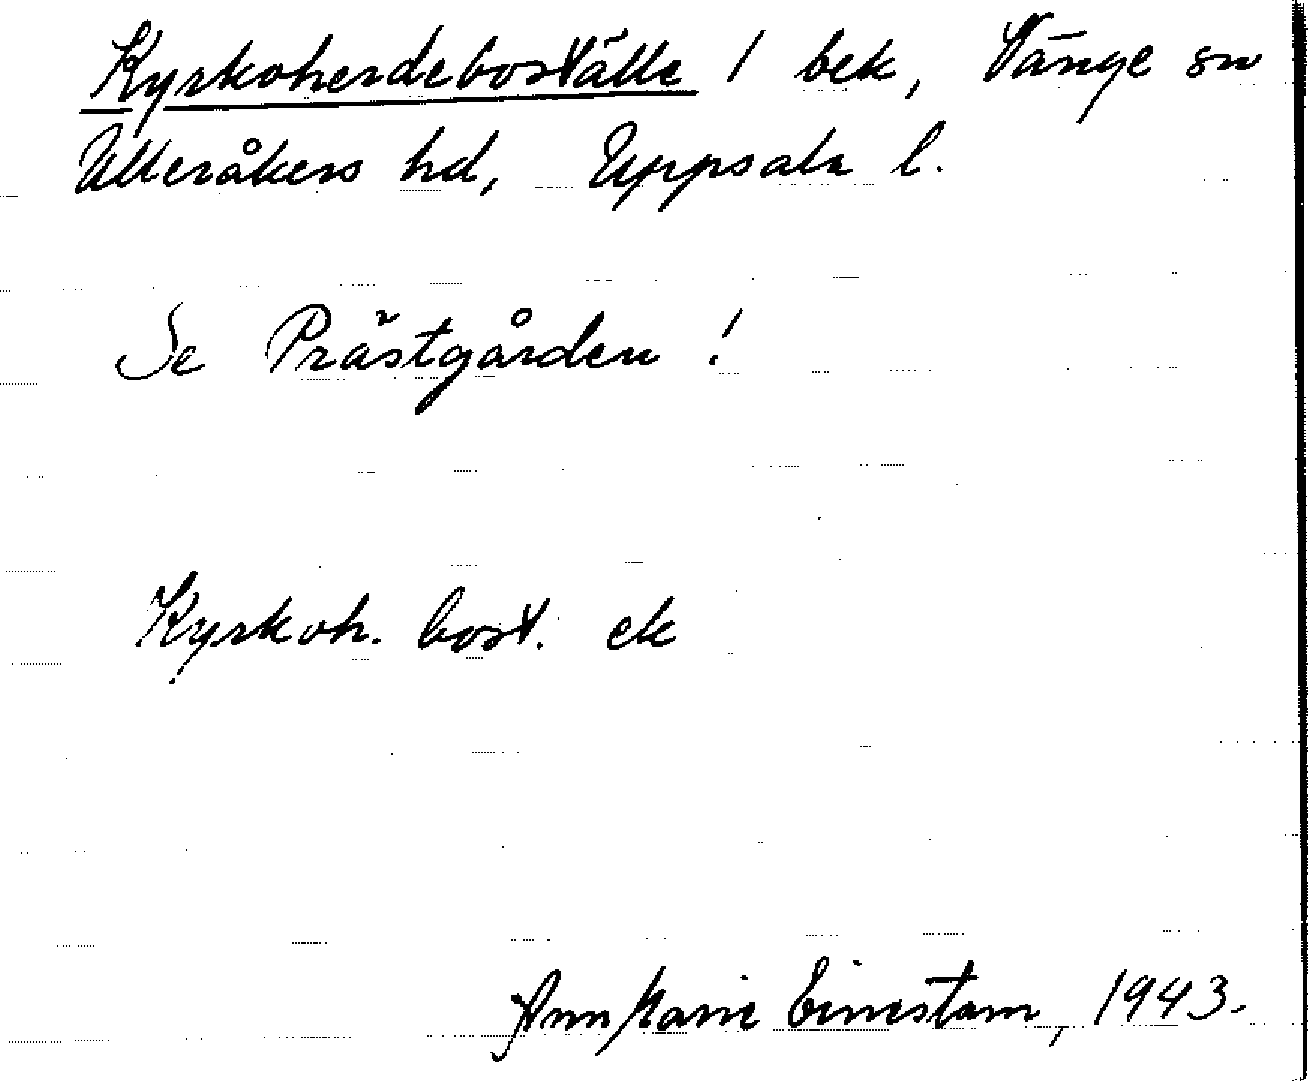 Kyrkoherdeboställe 1 bek, Vänge sn
Ulleråkers hd, Uppsala l.
Se Prästgården !
Kyrkoh. bost. ek
Ann Marie Einestam, 1943.